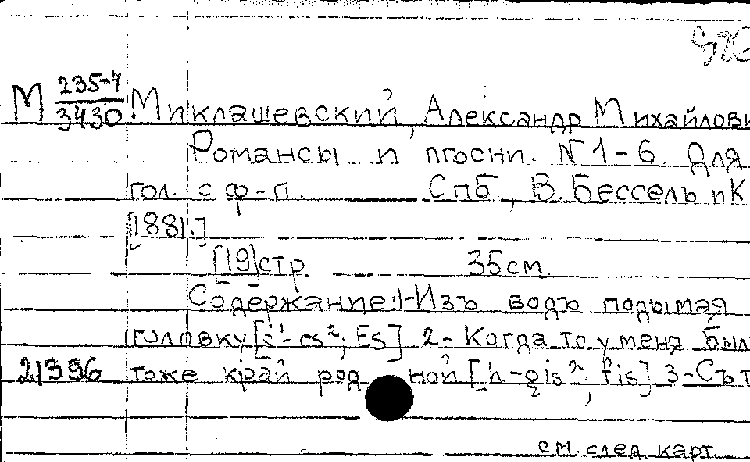 М 235-4/3430. Миклашевский, Александр Михайлови
Романсы и пѣсни. N 1-6. Для
гол. с ф-п. Спб, В. Бессель и К
[1881.]
[19] стр. 35 см.
Содержание: 1-Изъ водъ подымая
головку [ -cs²; Es] 2- Когда то у меня был
21396 тоже край родной [h-gis²; fis] 3-Съ т
см. след. карт